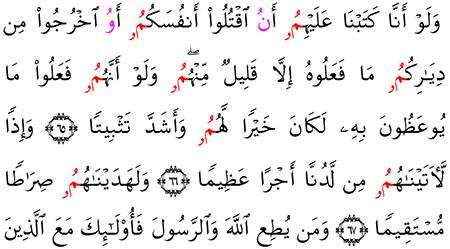 وَلَوْ أَنَّا كَتَبْنَا عَلَيْهِمُۥ أَنُ ٱقْتُلُوٓا۟ أَنفُسَكُمُۥ أَوُ ٱخْرُجُوا۟ مِن
دِيَٰرِكُمُۥ مَا فَعَلُوهُ إِلَّا قَلِيلٌ مِّنْهُمُۥۖ وَلَوْ أَنَّهُمُۥ فَعَلُوا۟ مَا
يُوعَظُونَ بِهِۦ لَكَانَ خَيْرًا لَّهُمُۥ وَأَشَدَّ تَثْبِيتًا ﴿٦٥﴾ وَإِذًا
لَّأٓتَيْنَٰهُمُۥ مِن لَّدُنَّا أَجْرًا عَظِيمًا ﴿٦٦﴾ وَلَهَدَيْنَٰهُمُۥ صِرَٰطًا
مُّسْتَقِيمًا ﴿٦٧﴾ وَمَن يُطِعِ ٱللَّهَ وَٱلرَّسُولَ فَأُو۟لَٰٓئِكَ مَعَ ٱلَّذِينَ